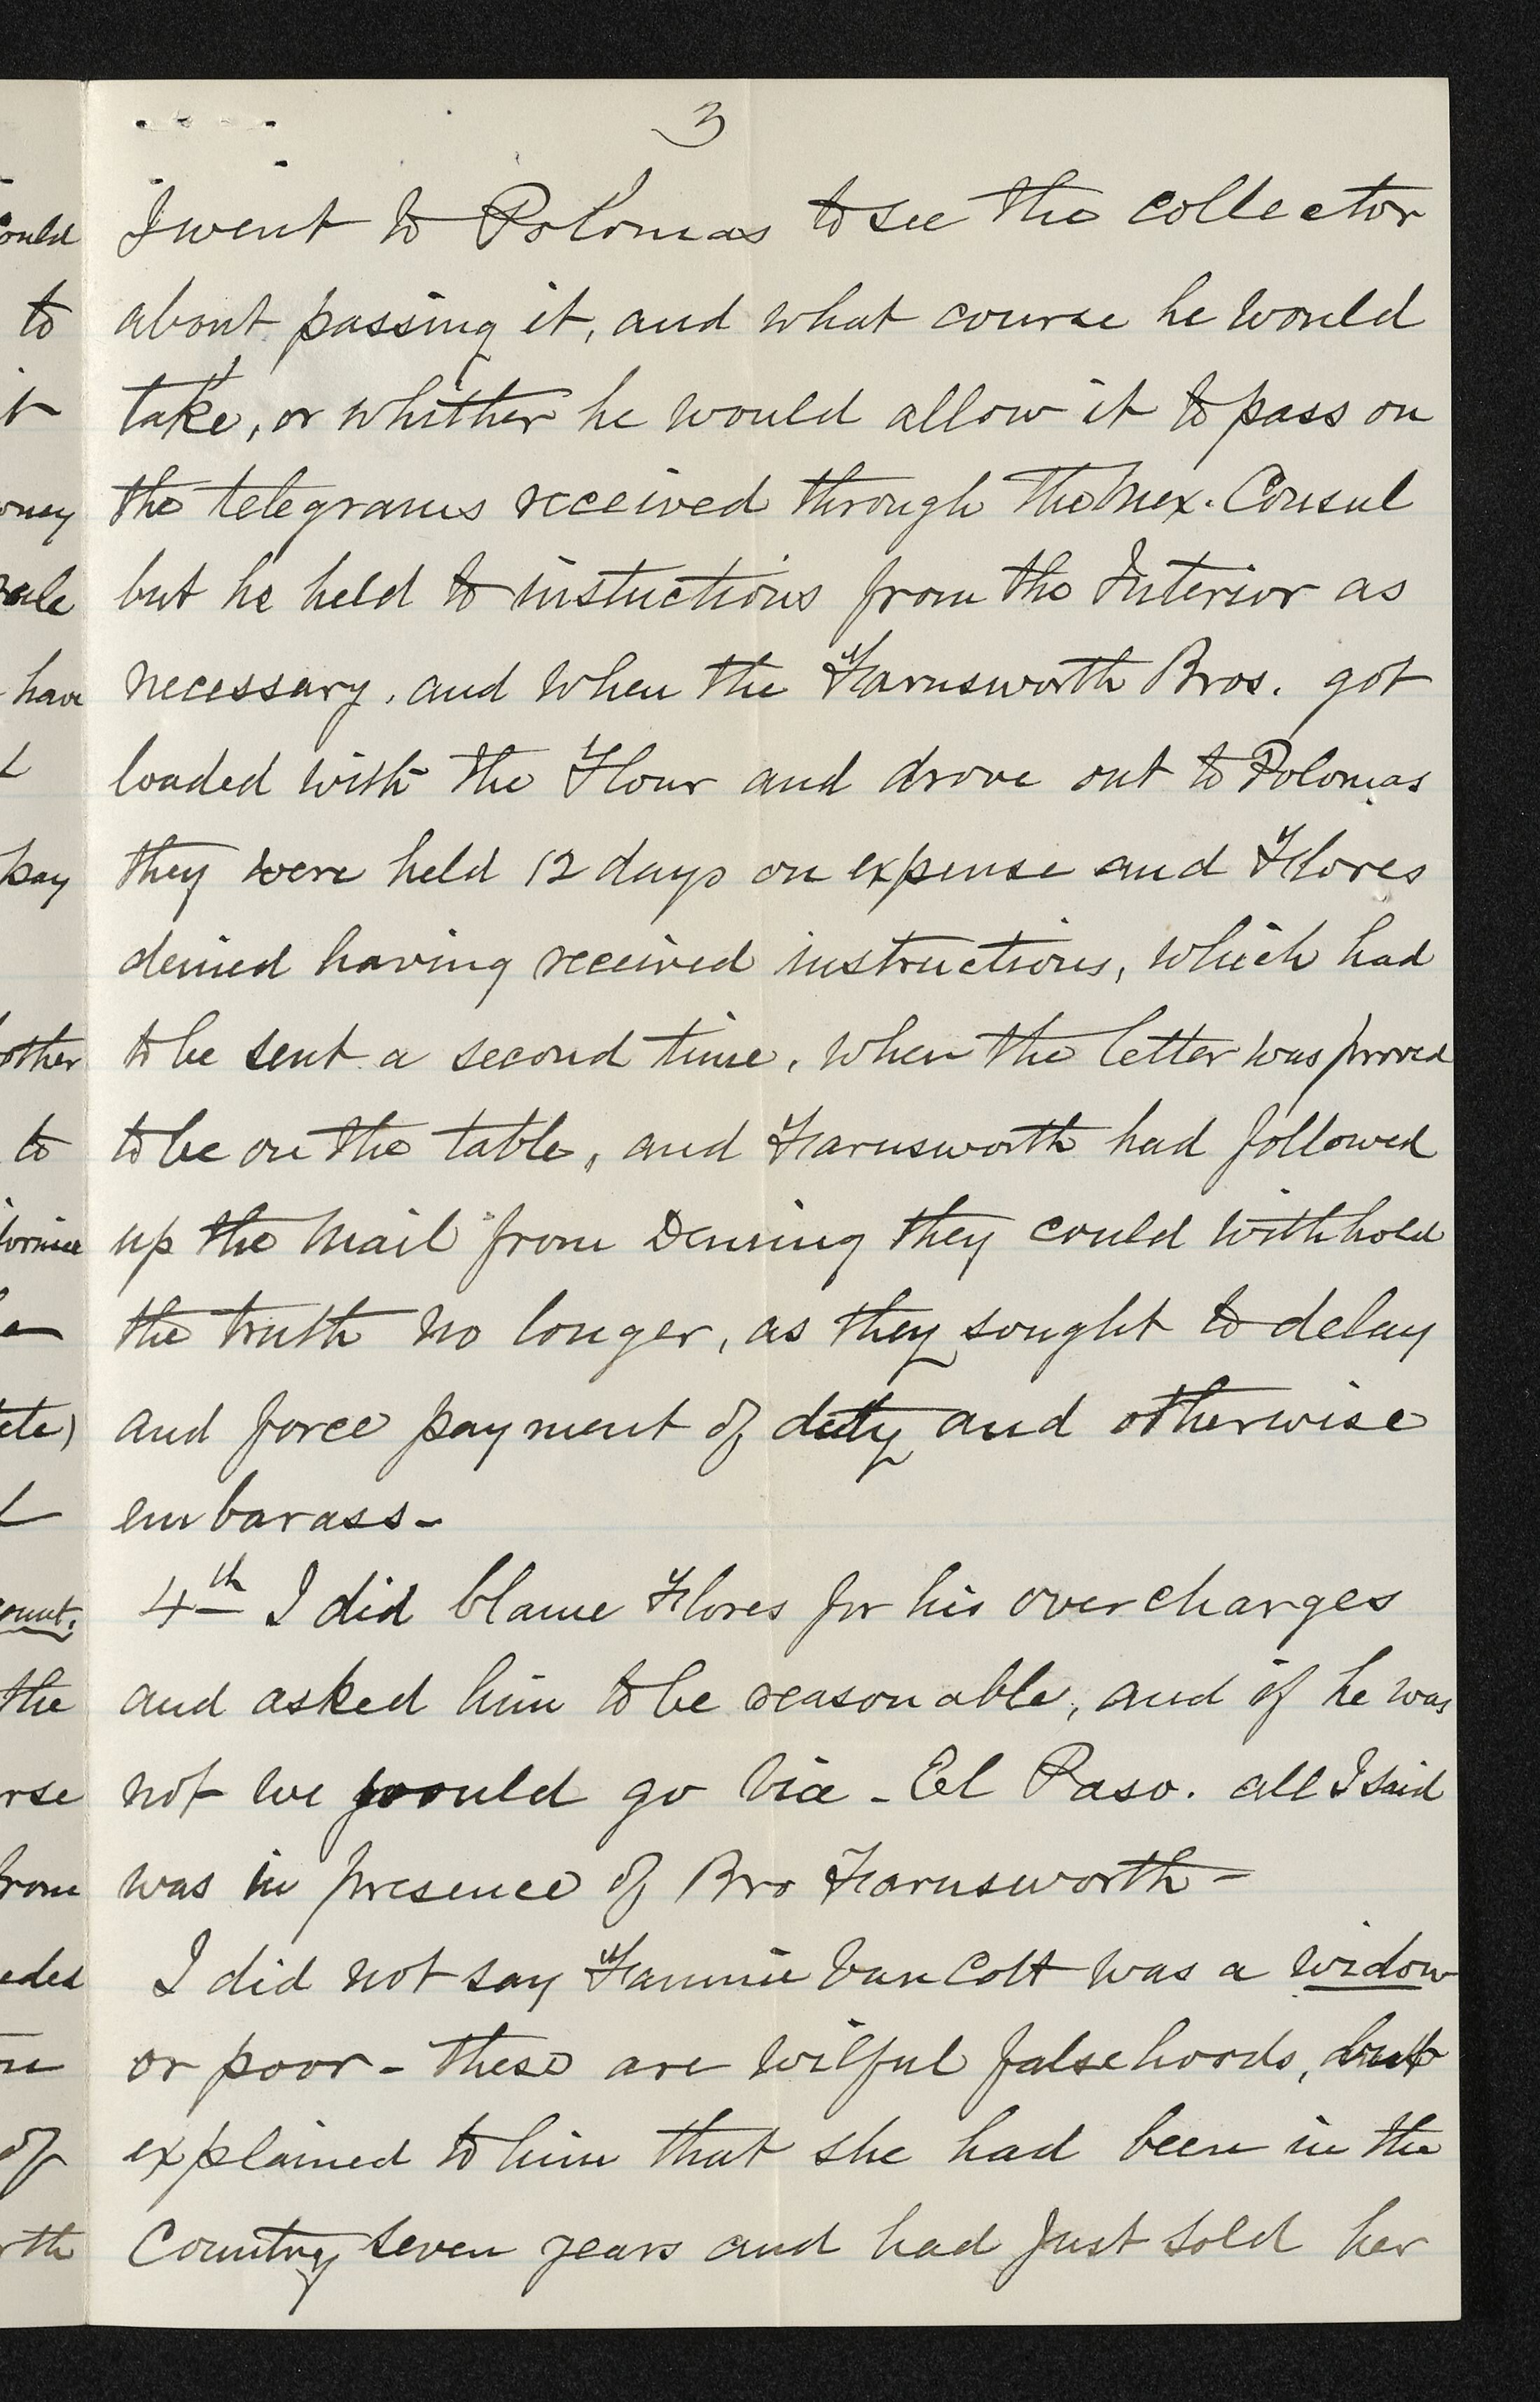 3
I went to Polomas to see the collector
about passing it, and what course he would
take, or whither he would allow it to pass on
the telegrams received through the Mex. Consul
but he held to instuctions from the Interior as
necessary, and when the Farnsworth Bros. got
loaded with the Flour and drove out to Polomas
they were held 12 days on expense and Flores
denied having received instructions, which had
to be sent a second time, when the letter was proved
to be on the table, and Farnsworth had followed
up the Mail from Deming they could withhold
the truth no longer, as they sought to delay
and force payment of duty and otherwise
embarass-
4th I did blame Flores for his overcharges
and asked him to be reasonable, and if he was
not we would go via - El Paso. all I said
was in presence of Bro Farnsworth -
I did not say Fannie Van Cott was a widow
or poor - these are wilful falsehoods, but
explained to him that she had been in the
Country seven years and had just sold her
ould
to
it
oney
have
pay
other
to
ete)
ount.
the
rse
from
of
rth